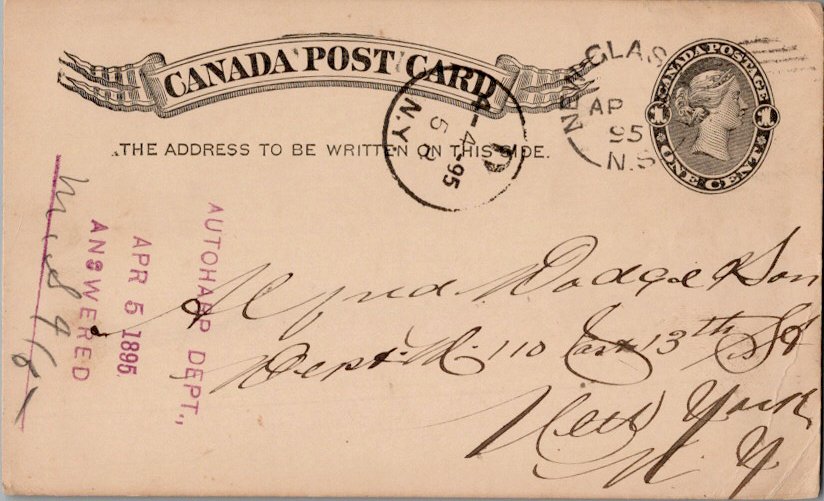 CANADA POST CARD
THE ADDRESS TO BE WRITTEN ON THIS SIDE.
CANADA POSTAGE
1 1
ONE CENT
NEW GLAS
AP
95
N.S
4-95
5
N.Y.
Alfred Dodge & Son
Dept. M. 110 East 13th St
New York
N Y
AUTOHARP DEPT.,
APR 5 1895
ANSWERED